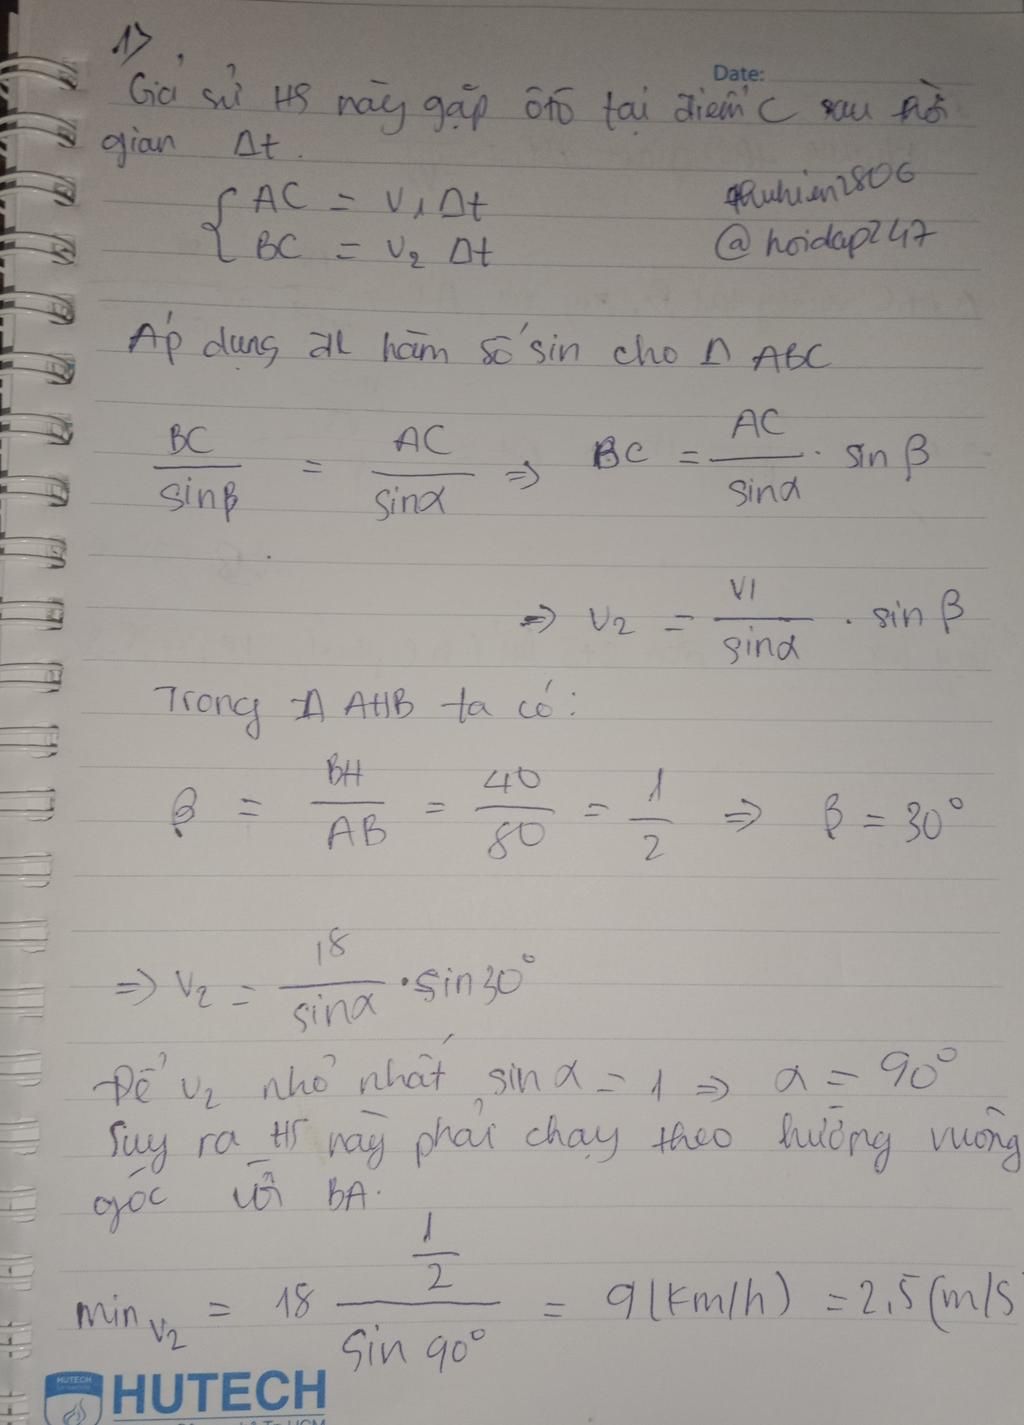 1>.
Date:
Giả sử HS này gặp ôtô tại điểm C sau thời
gian Δt.
AC = V1 Δt
BC = V2 Δt
@hoidap247
Áp dụng đl hàm số sin cho Δ ABC
BC/sinβ = AC/sinα => BC = AC/sinα . sin β
=> V2 = V1/sinα . sin β
Trong Δ AHB ta có:
β = BH/AB = 40/80 = 1/2 => β = 30°
=> V2 = 18/sinα . sin 30°
Để V2 nhỏ nhất sin α = 1 => α = 90°
Suy ra HS này phải chạy theo hướng vuông
góc với BA.
min V2 = 18 1/2/Sin 90° = 9 (km/h) = 2,5 (m/s
HUTECH
HUTECH